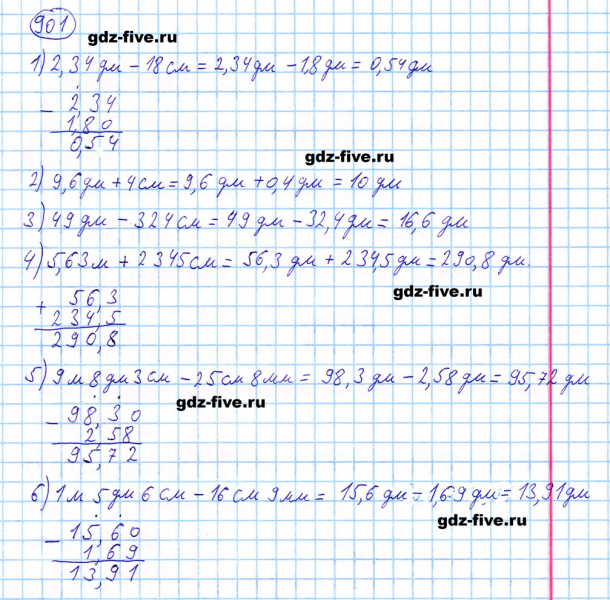 901
gdz-five.ru
1) 2,34 дм – 18 см = 2,34 дм – 1,8 дм = 0,54 дм
– 2,34
1,80
0,54
gdz-five.ru
2) 9,6 дм + 4 см = 9,6 дм + 0,4 дм = 10 дм
3) 49 дм – 324 см = 49 дм – 32,4 дм = 16,6 дм
4) 5,63 м + 2345 см = 56,3 дм + 234,5 дм = 290,8 дм.
gdz-five.ru
+ 56,3
234,5
290,8
5) 9 м 8 дм 3 см – 25 см 8 мм = 98,3 дм – 2,58 дм = 95,72 дм
gdz-five.ru
– 98,30
2,58
95,72
6) 1 м 5 дм 6 см – 16 см 9 мм = 15,6 дм – 1,69 дм = 13,91 дм
gdz-five.ru
– 15,60
1,69
13,91